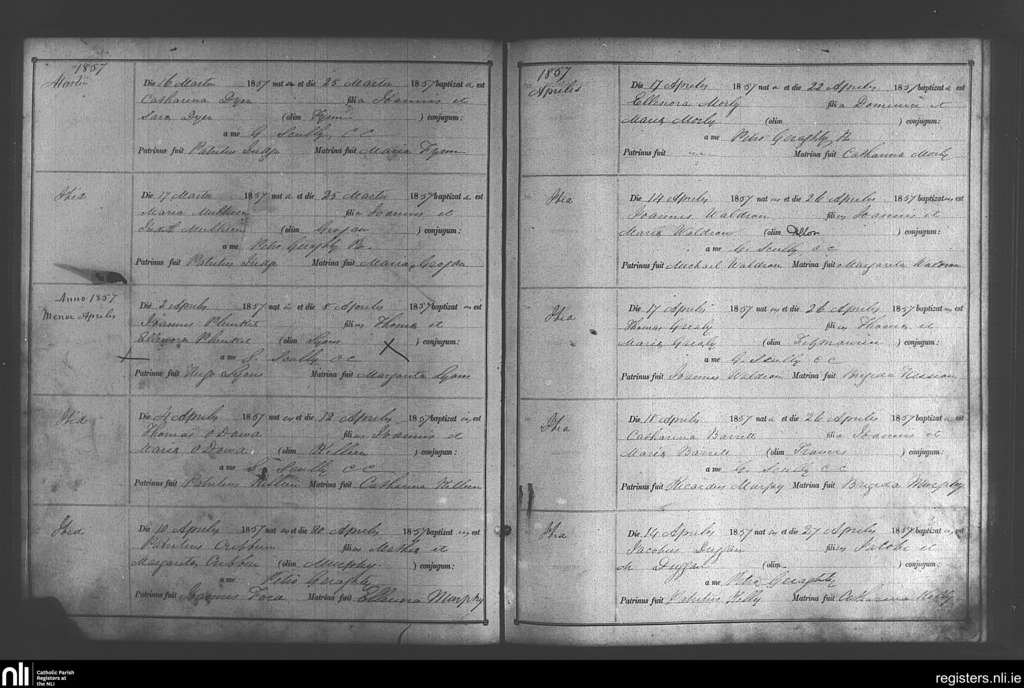 1857
Martii
Die 16 Martii 1857 nat a et die 25 Martii 1857 baptizat a est
Catharina Dyer filia Joannis et
Sara Dyer (olim Flynn) conjugum:
a me G. Scully C C
Patrinus fuit Patritius Judge Matrina fuit Maria Flynn
Ibid
Die 17 Martii 1857 nat a et die 25 Martii 1857 baptizat a est
Maria Mullin filia Joannis et
Judith Mullin (olim Grogan) conjugum:
a me Petro Geraghty
Patrinus fuit Patritius Judge Matrina fuit Maria Grogan
Anno 1857
Mense Aprilis
Die 2 Aprilis 1857 nat et die 5 Aprilis 1857 baptizat us est
Joannes Plunket filius Thoma et
Ellenora Plunket (olim Lyons) conjugum:
a me G. Scully CC
Patrinus fuit Hugo Lyons Matrina fuit Margarita Lyons
Ibid
Die 4 Aprilis 1857 nat us et die 12 Aprilis 1857 baptizat us est
Thomas O Dowd filius Joannis et
Maria O Dowd (olim Killeen) conjugum:
a me G. Scully C C
Patrinus fuit Patritius Matrina fuit Catharina Killeen
Ibid
Die 10 Aprilis 1857 nat us et die Aprilis 1857 baptizat us est
Patritius filius Mathia et
Margarita (olim Murphy) conjugum:
a me Petro Geraghty
Patrinus fuit Joannes Matrina fuit Ellenora Murphy
1857
Aprilis
Die 17 Aprilis 1857 nat a et die 22 Aprilis 1857 baptizat a est
Ellenora Morly filia Dominici et
Maria Morly (olim ) conjugum:
a me Petro Geraghty
Patrinus fuit Matrina fuit Catharina Morly
Ibid
Die 14 Aprilis 1857 nat us et die 26 Aprilis 1857 baptizat us est
Joannes Waldron filius Joannis et
Maria Waldron (olim Dillon) conjugum:
a me G. Scully CC
Patrinus fuit Michael Waldron Matrina fuit Margarita Waldron
Ibid
Die 17 Aprilis 1857 nat us et die 26 Aprilis 1857 baptizat us est
Thomas Grealy filius Thoma et
Maria Grealy (olim Fitzmaurice) conjugum:
a me G. Scully C C
Patrinus fuit Joannes Waldron Matrina fuit Brigida
Ibid
Die 18 Aprilis 1857 nat a et die 26 Aprilis 1857 baptizat a est
Catharina Barrett filia Joannis et
Maria Barrett (olim ) conjugum:
a me G. Scully C C
Patrinus fuit Ricardus Murphy Matrina fuit Brigida Murphy
Ibid
Die 14 Aprilis 1857 nat us et die 27 Aprilis 1857 baptizat us est
Jacobus Duggan filius Jacobi et
Duggan (olim ) conjugum:
a me Petro Geraghty
Patrinus fuit Patritius Kelly Matrina fuit Catharina Kelly
nli
Catholic Parish
Registers at
the NLI
registers.nli.ie